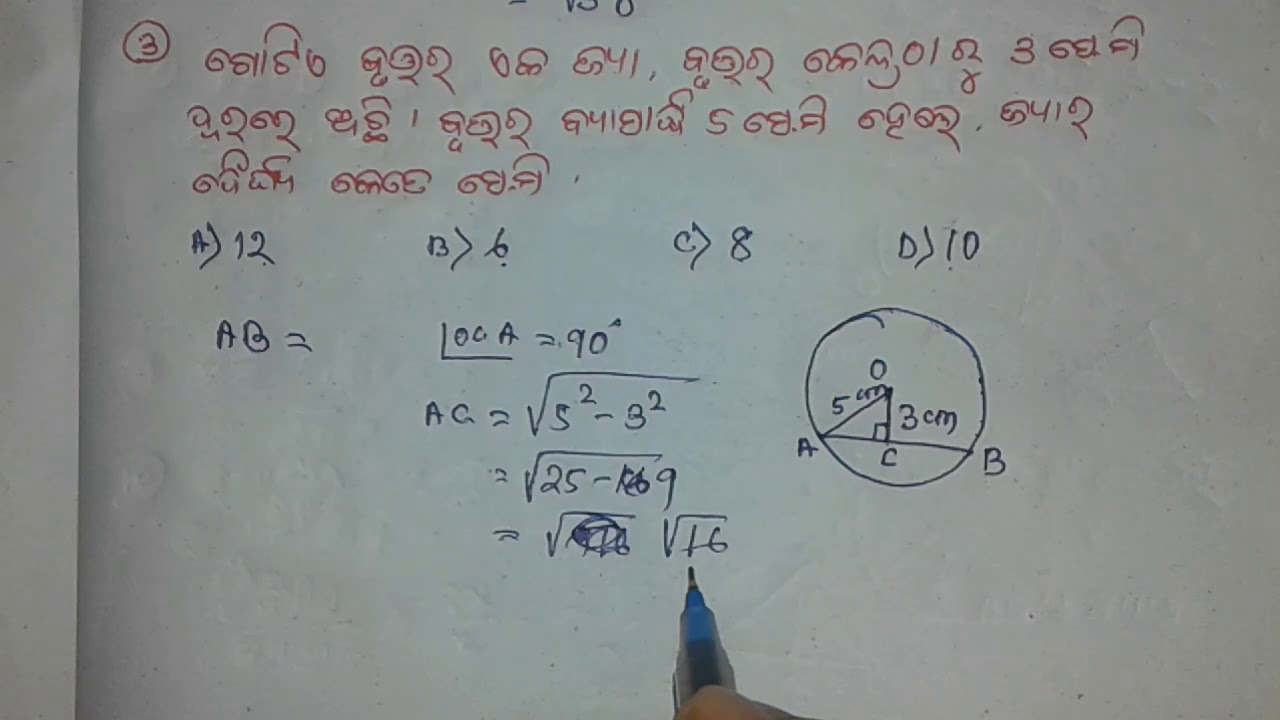 ③ ଗୋଟିଏ ବୃତ୍ତର ଏକ ଜ୍ୟା, ବୃତ୍ତର କେନ୍ଦ୍ରଠାରୁ 3 ସେ.ମି
ଦୂରରେ ଅଛି। ବୃତ୍ତର ବ୍ୟାସାର୍ଦ୍ଧ 5 ସେ.ମି ହେଲେ, ଜ୍ୟାର
ଦୈର୍ଘ୍ୟ କେତେ ସେ.ମି.
A) 12 B) 6 C) 8 D) 10
AB = ∠OCA = 90°
AC = √5² - 3²
= √25 - 9
= √16
O
5 cm
3 cm
A C B